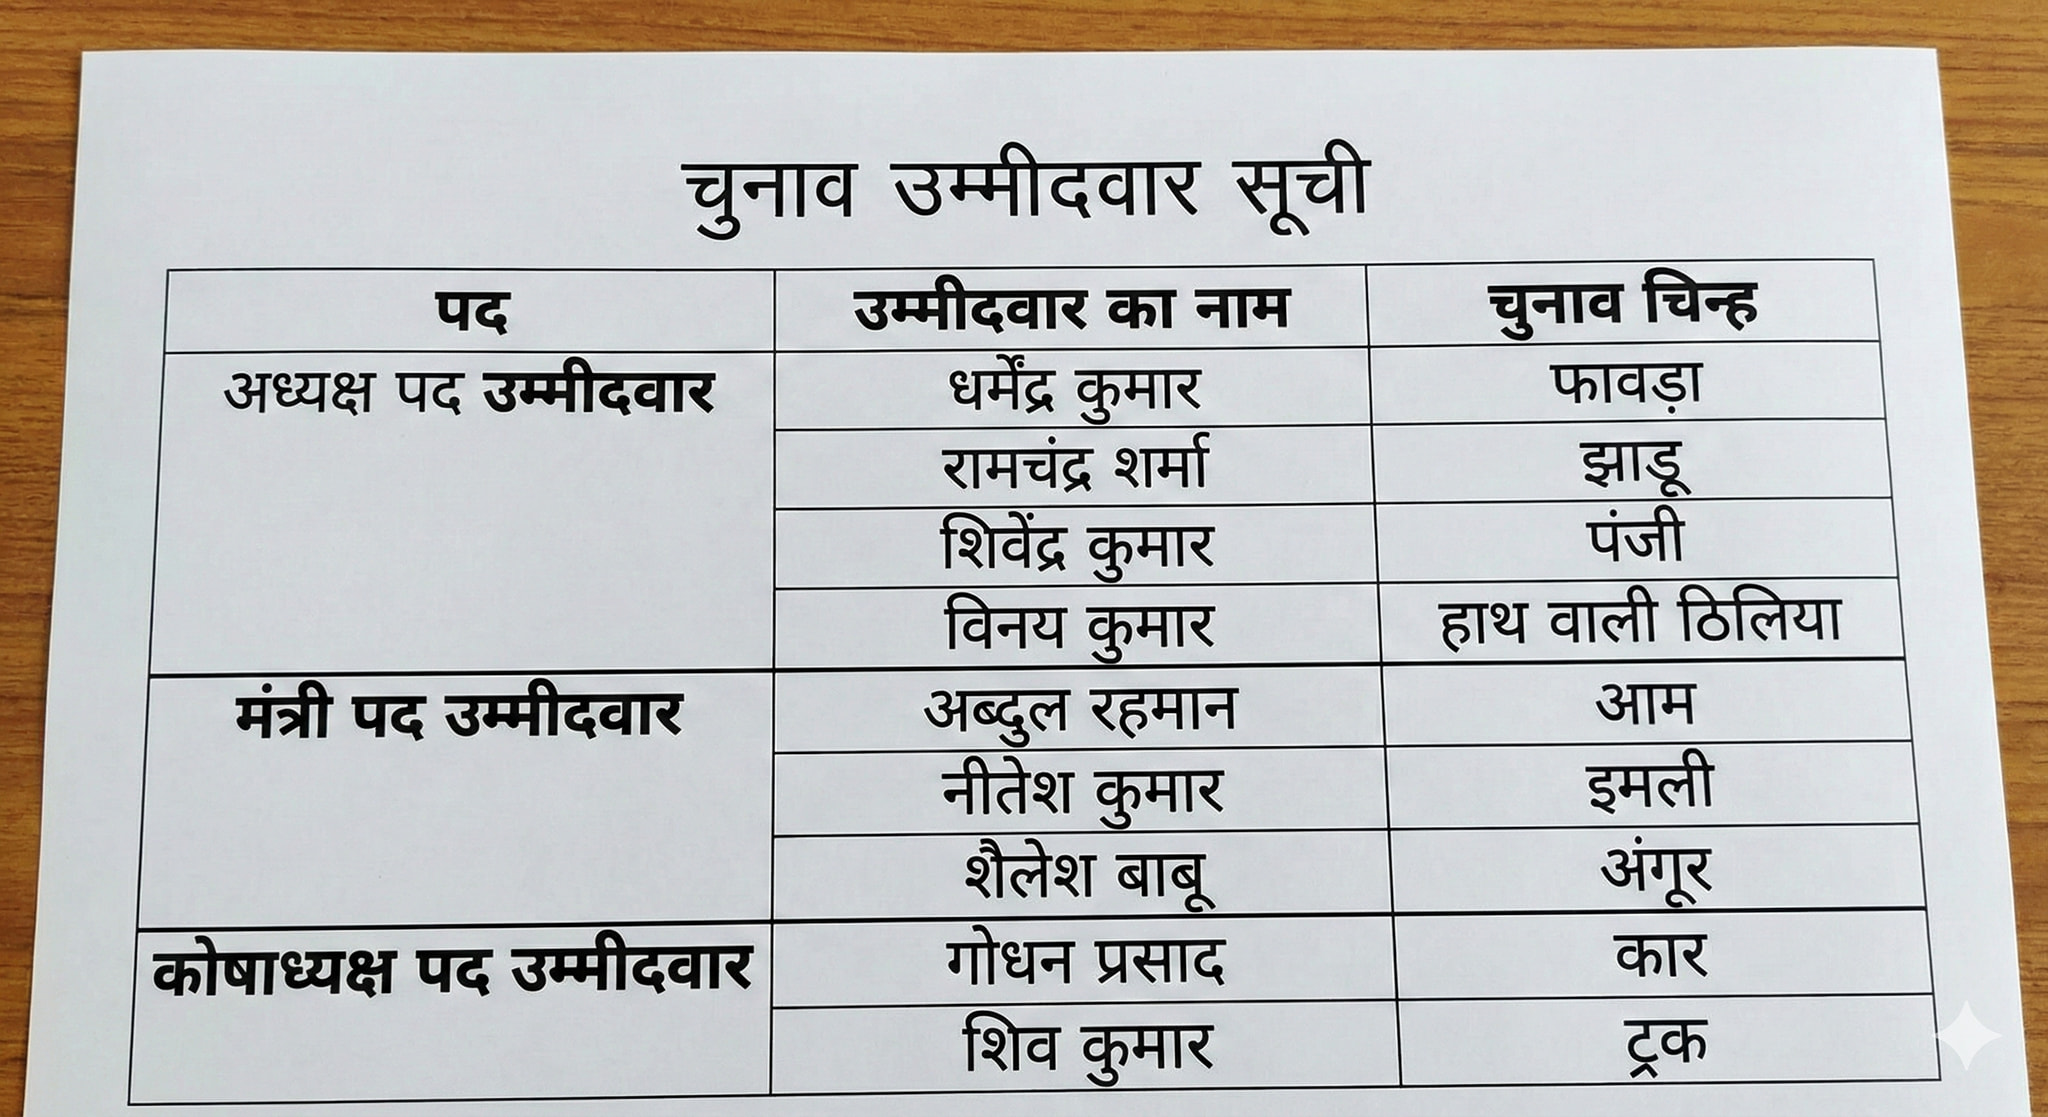 चुनाव उम्मीदवार सूची
पद उम्मीदवार का नाम चुनाव चिन्ह
अध्यक्ष पद उम्मीदवार धर्मेंद्र कुमार फावड़ा
रामचंद्र शर्मा झाडू
शिवेंद्र कुमार पंजी
विनय कुमार हाथ वाली ठिलिया
मंत्री पद उम्मीदवार अब्दुल रहमान आम
नीतेश कुमार इमली
शैलेश बाबू अंगूर
कोषाध्यक्ष पद उम्मीदवार गोधन प्रसाद कार
शिव कुमार ट्रक